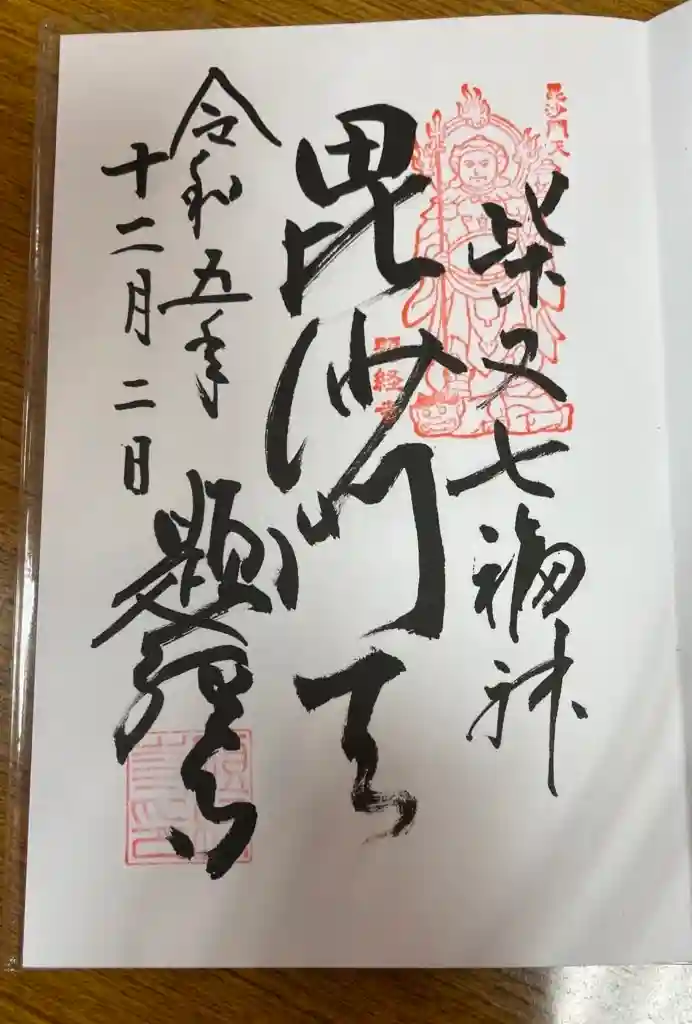 毘沙門天
柴又七福神
毘沙門天
題経寺
令和五年
十二月二日
題経寺